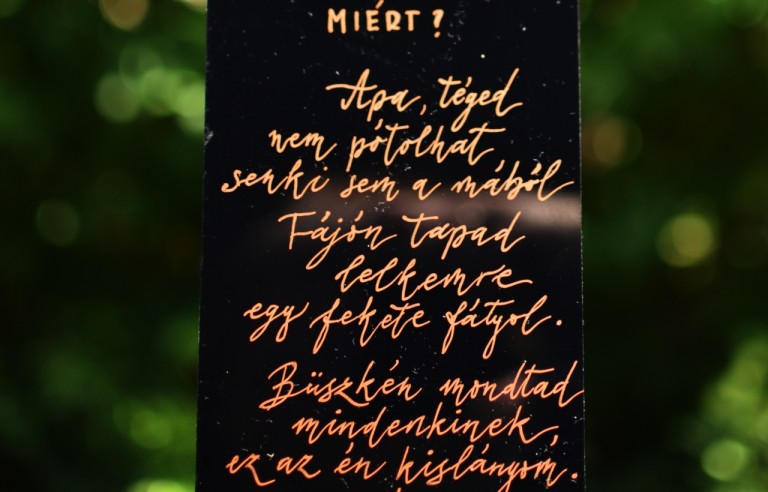 MIÉRT?
Apa, téged
nem pótolhat
senki sem a mából
Fájón tapad
lelkemre
egy fekete fátyol.
Büszkén mondtad
mindenkinek,
ez az én kislányom.